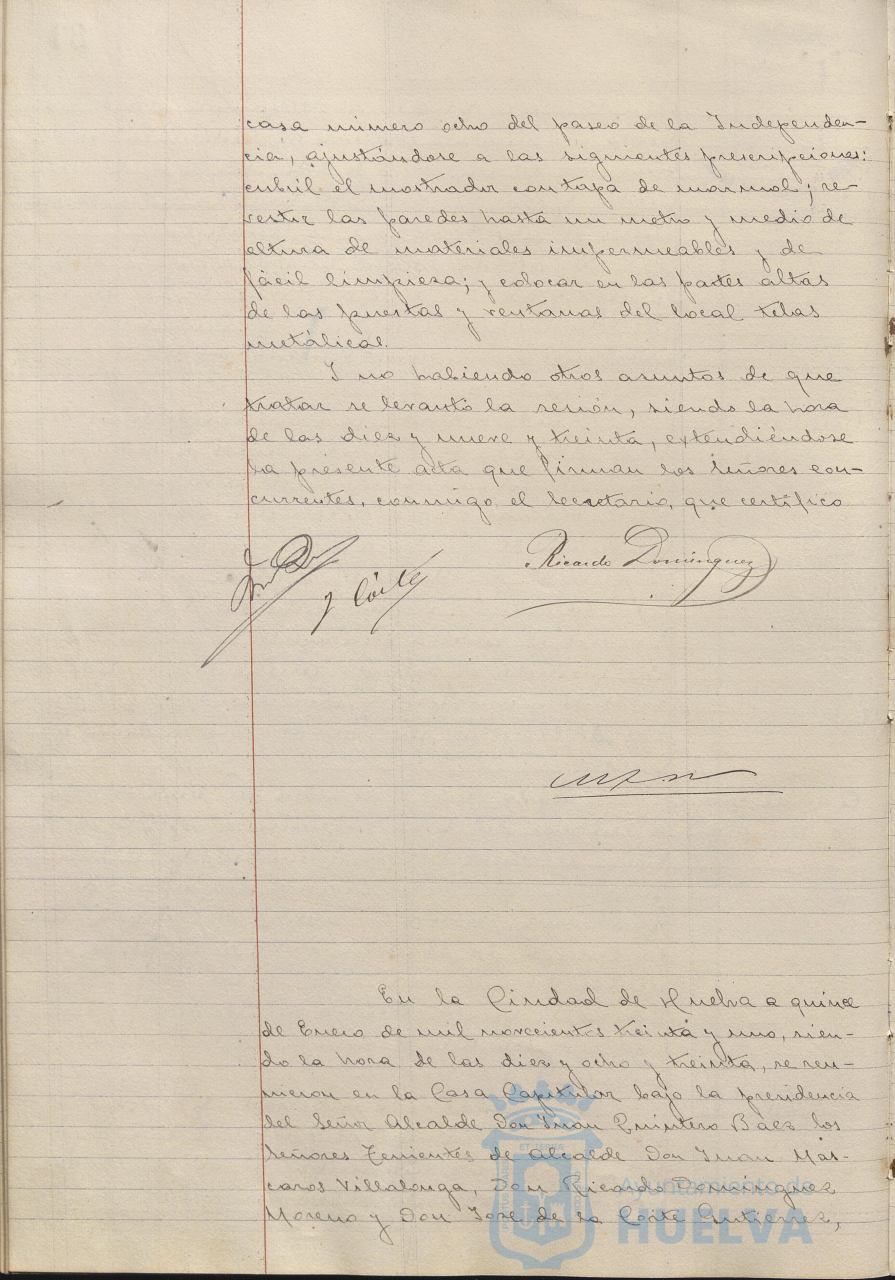 casa número ocho del paseo de la Independen-
cia, ajustándose a las siguientes prescripciones:
cubril el mostrador con tapa de marmol; re-
vestir las paredes hasta un metro y medio de
altura de materiales impermeables y de
fácil limpieza; y colocar en las partes altas
de las puertas y ventanas del local telas
metálicas.
Y no habiendo otros asuntos de que
tratar se levantó la sesión, siendo la hora
de las diez y nueve y treinta, extendiéndose
la presente acta que firman los señores con-
currentes, conmigo el Secretario, que certifico
Ricardo Dominguez
J Córte
En la Ciudad de Huelva a quince
de Enero de mil novecientos treinta y uno, sien-
do la hora de las diez y ocho y treinta, se reu-
nieron en la Casa Capitular bajo la presidencia
del Señor Alcalde Don Juan Quintero Baez los
Señores Tenientes de Alcalde Don Juan Más-
caros Villalonga, Don Ricardo Dominguez
Moreno y Don Jose de la Corte Gutierrez,
Ayuntamiento de
HUELVA